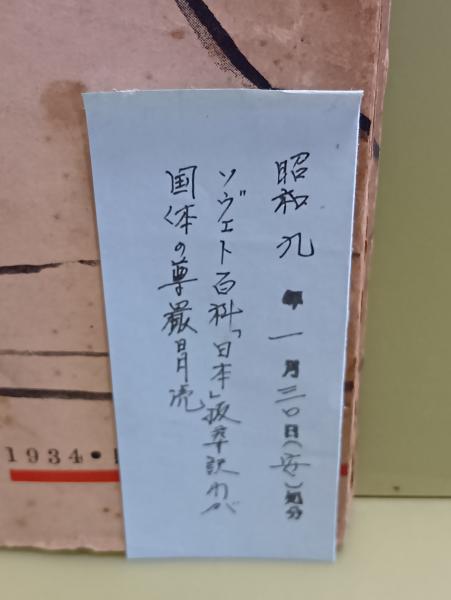 昭和九年一月三〇日(安)処分
ソヴェト百科「日本」抜萃訳わが
国体の尊厳冒涜
1934•